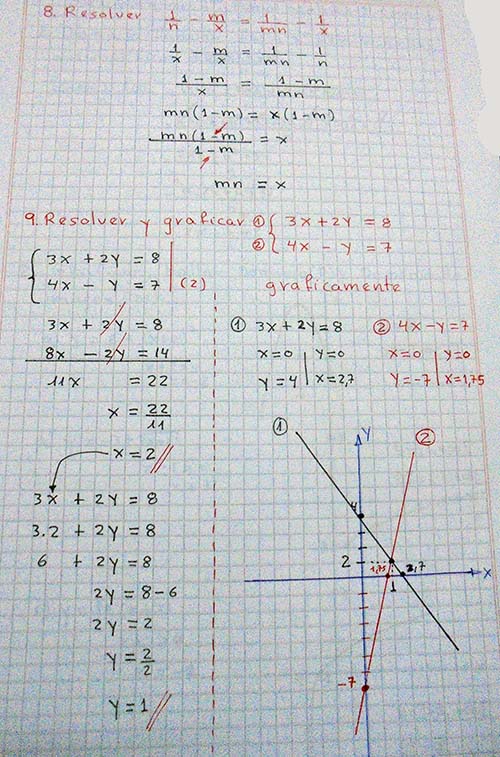 8. Resolver 1/n - m/x = 1/mn - 1/x
1/x - m/x = 1/mn - 1/n
1-m/x = 1-m/mn
mn(1-m) = x(1-m)
mn(1-m)/1-m = x
mn = x
9. Resolver y graficar ① { 3x+2y = 8
② 4x - y = 7
{ 3x + 2y = 8
4x - y = 7 | (2)
3x + 2y = 8
8x - 2y = 14
11x = 22
x = 22/11
x = 2
3x + 2y = 8
3.2 + 2y = 8
6 + 2y = 8
2y = 8-6
2y = 2
y = 2/2
y = 1
graficamente
① 3x+2y=8
x=0 | y=0
y=4 | x=2,7
② 4x-y=7
x=0 | y=0
y=-7 | x=1,75
①
y
②
4
2
1,75
2,7
1
x
-7